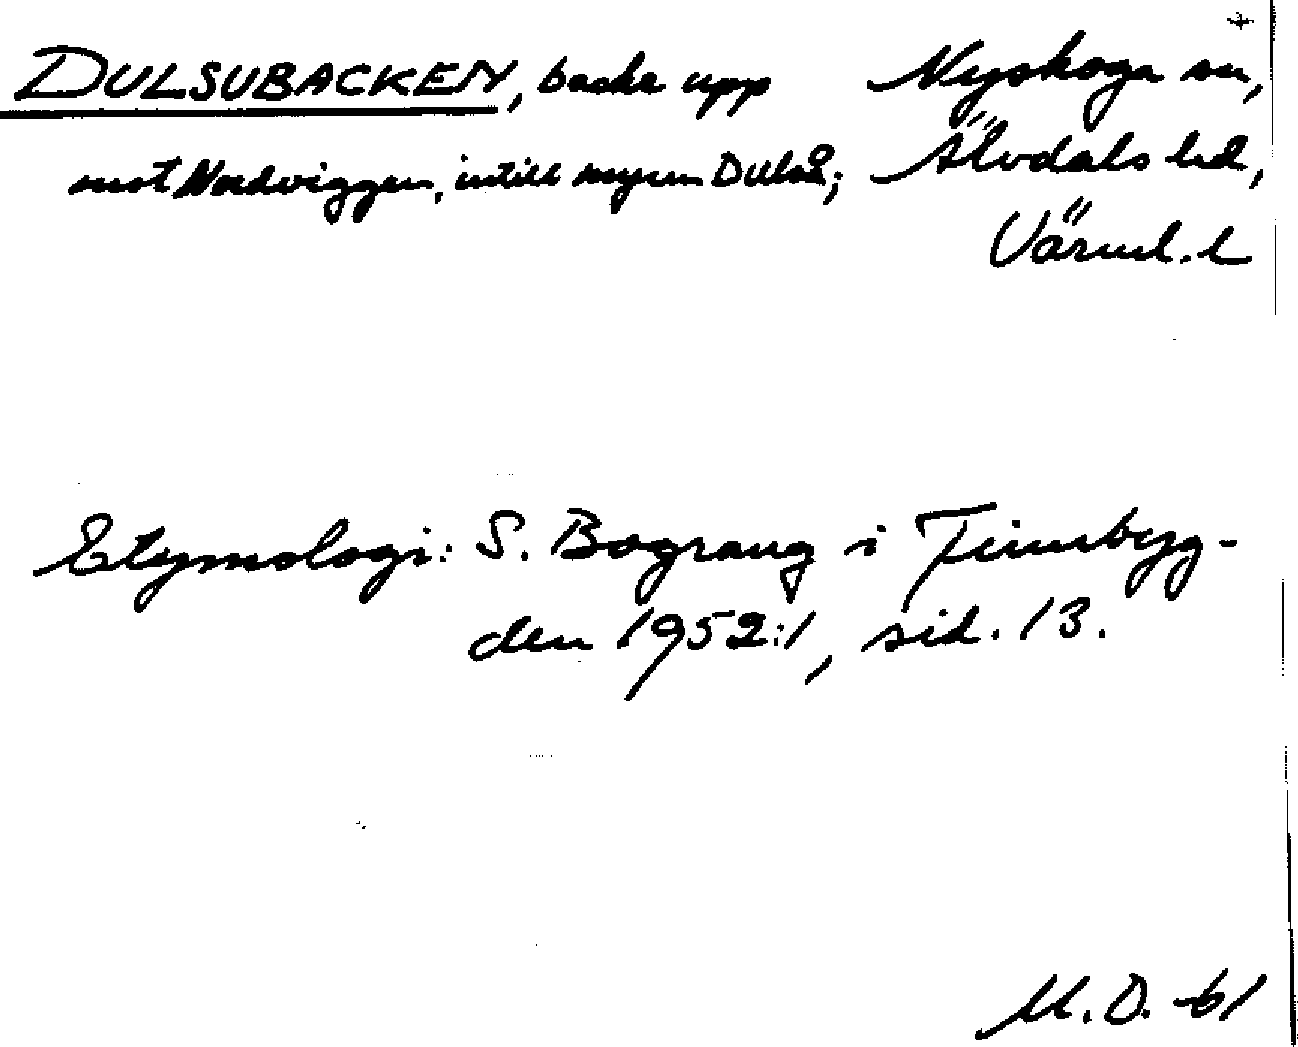 DULSUBACKEN, backe upp
mot Nordviggen, intill myren Dulså;
Nyskoga sn,
Älvdals hd,
Värml. l
Etymologi: S. Bograng i Finnbyg-
den 1952:1, sid. 13.
M.D. -61